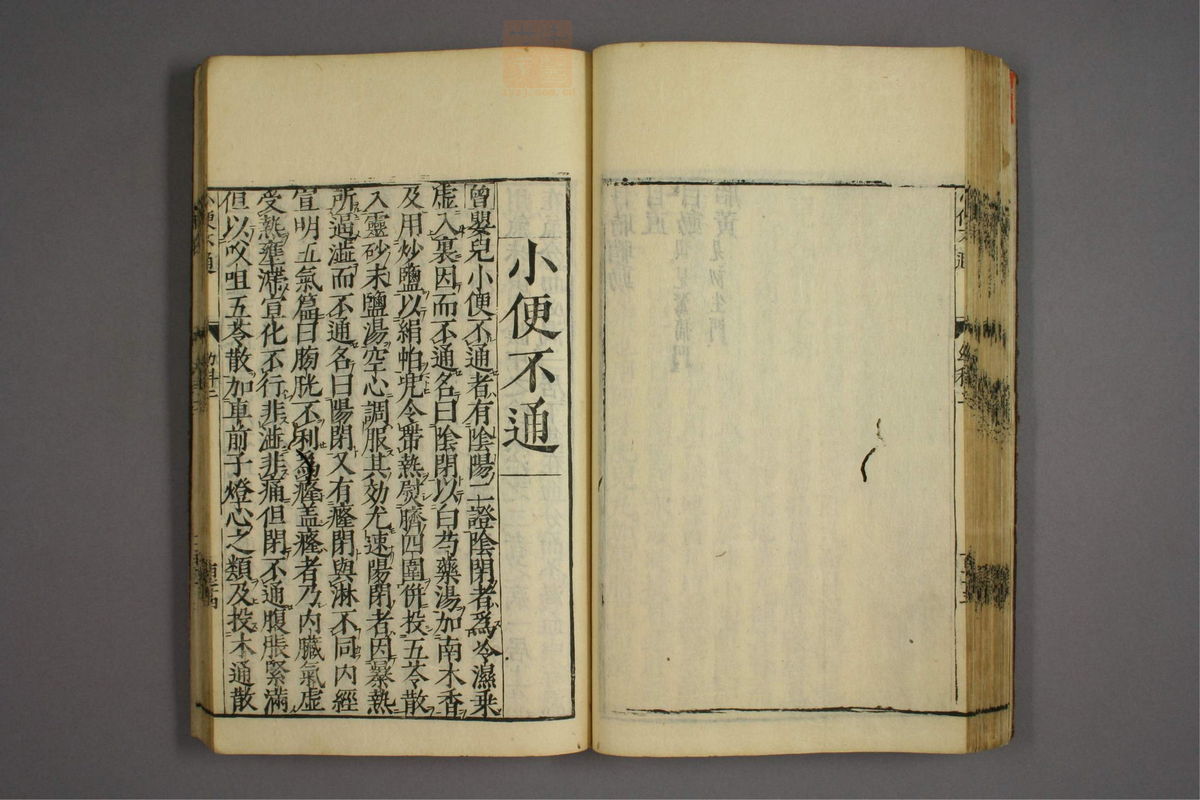 小便不通
曾嬰兒小便不通者有陰陽二證陰閉者爲冷濕乗
虚入裏因而不通名曰陰閉以白芍藥湯加南木香
及用炒鹽以絹帕兠令帶熱熨臍四圍併投五苓散
入靈砂末鹽湯空心調服其効尤速陽閉者因暴熱
所逼澁而不通名曰陽閉又有癃閉與淋不同内經
宣明五氣篇曰膀胱不利爲癃盖癃者乃内臓氣虚
受熱壅滯宣化不行非澁非痛但閉不通腹脹緊滿
但以㕮咀五苓散加車前子燈心之類及投木通散
小便不通
幼科二